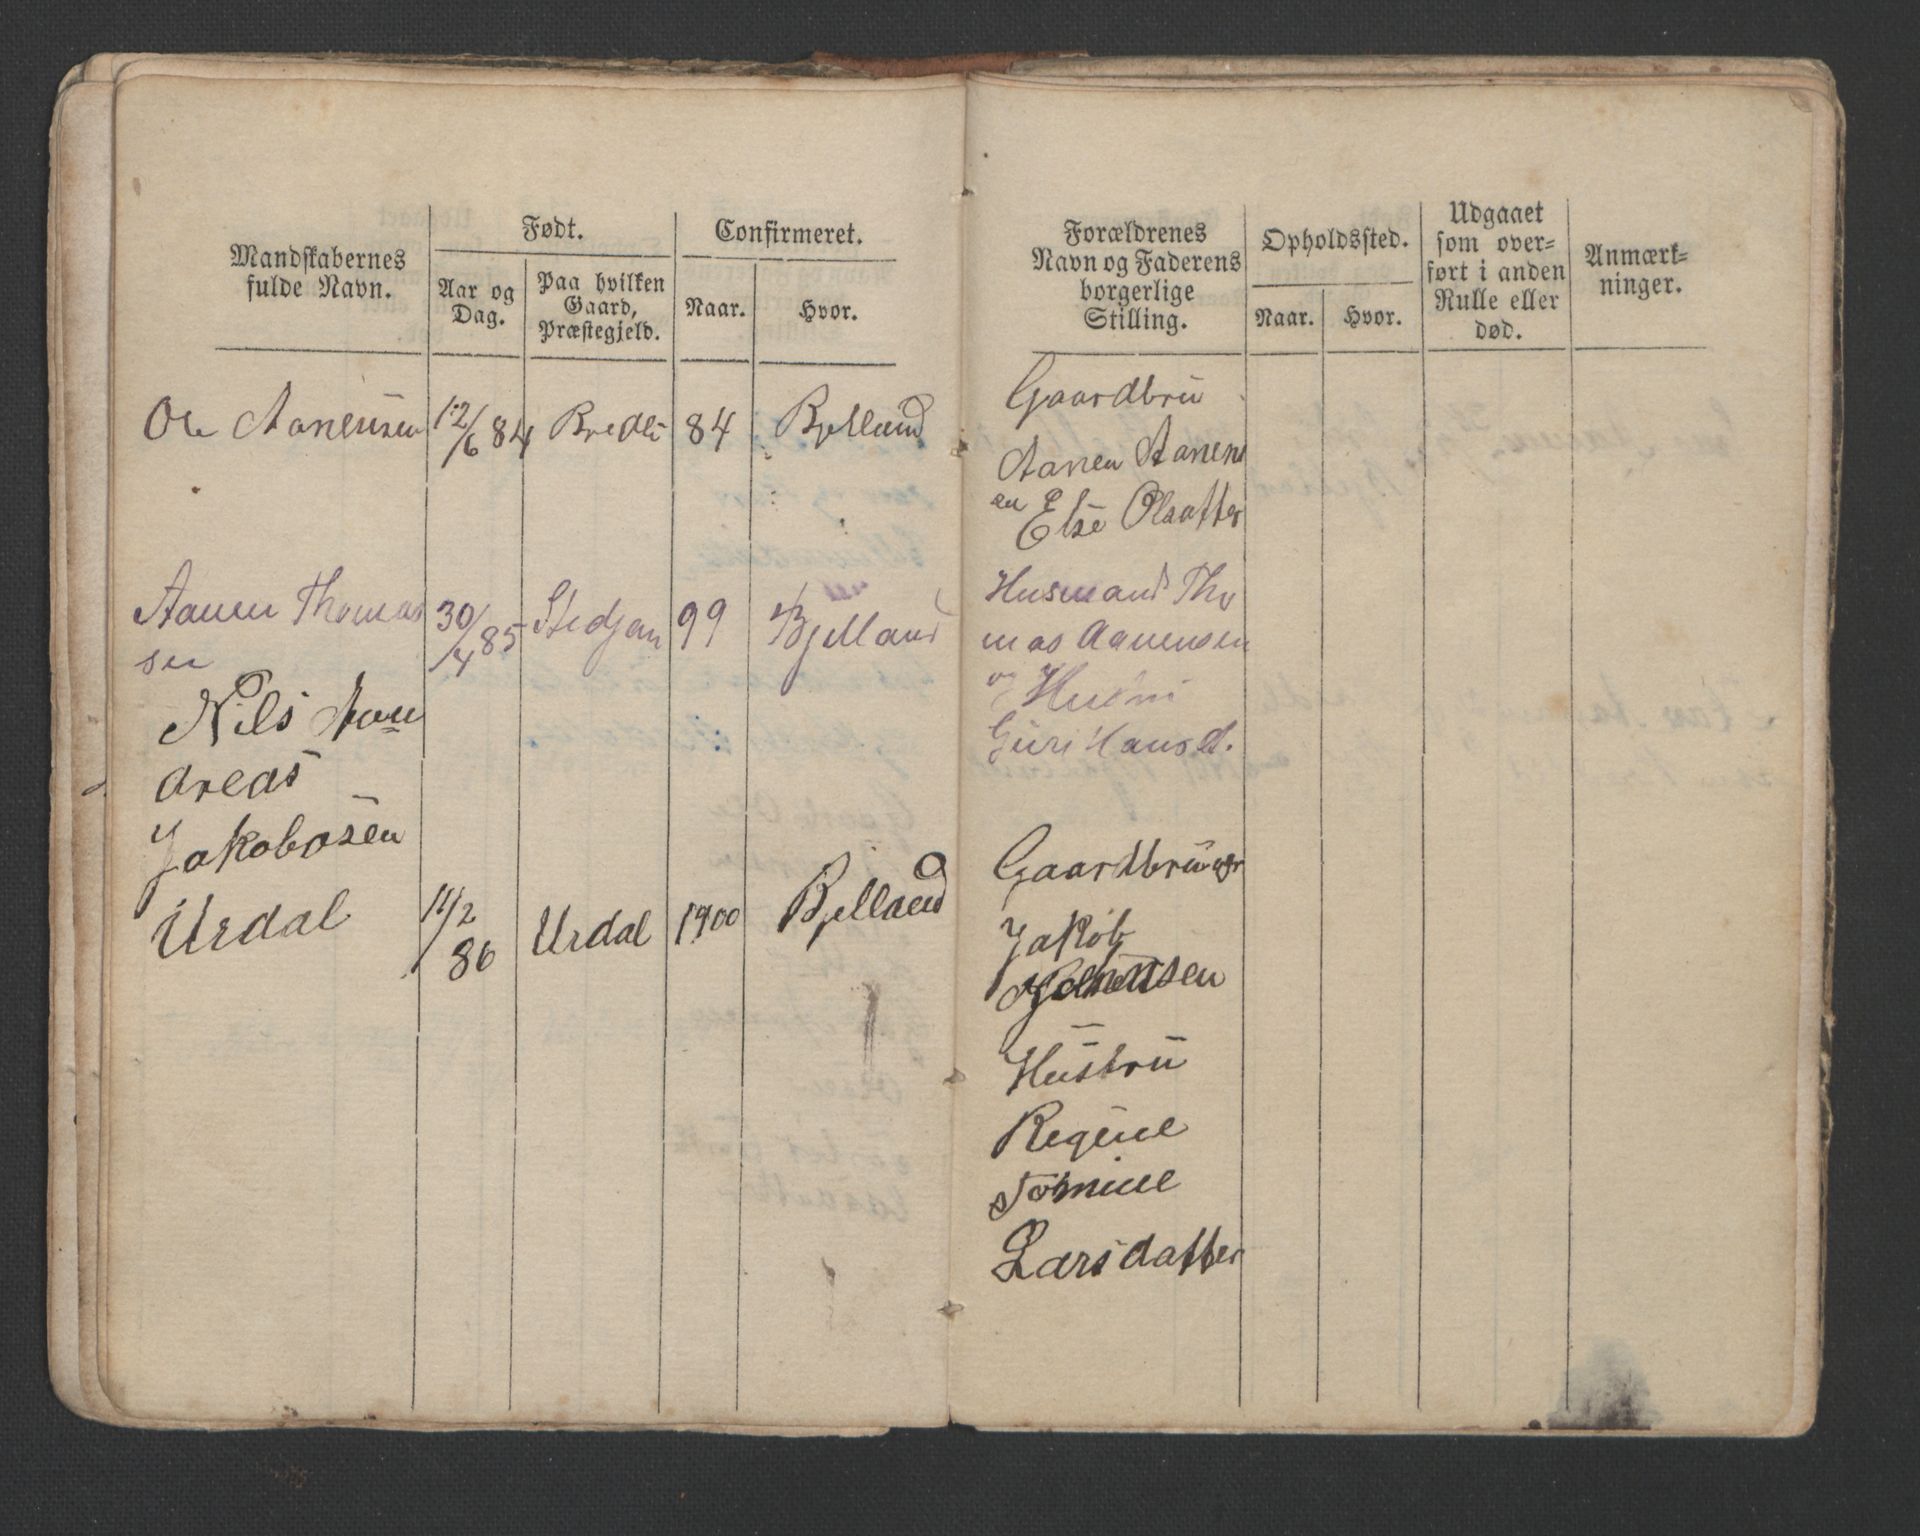 Mandskabernes
fulde Navn.
Født.
Aar og
Dag.
Paa hvilken
Gaard,
Præstegjeld.
Confirmeret.
Naar.
Hvor.
Ole Aanensen 12/6 84 Bredli 84 Bjelland
Aanen Thomas 30/4 85 Stedjan 99 Bjelland
sen
Nils Aan
dreas
Jakobosen
Urdal 11/2 86 Urdal 1900 Bjelland
Forældrenes
Navn og Faderens
borgerlige
Stilling.
Opholdssted.
Naar.
Hvor.
Udgaaet
som over-
ført i anden
Rulle eller
død.
Anmærk-
ninger.
Gaardbru
Aanen Aanens
en
Else Olsatter
Husmand Tho
mas Aanensen
og Hustru
Guri Hansd.
Gaardbruger
Jakob
Hustru
Regine
Tomine
Larsdatter